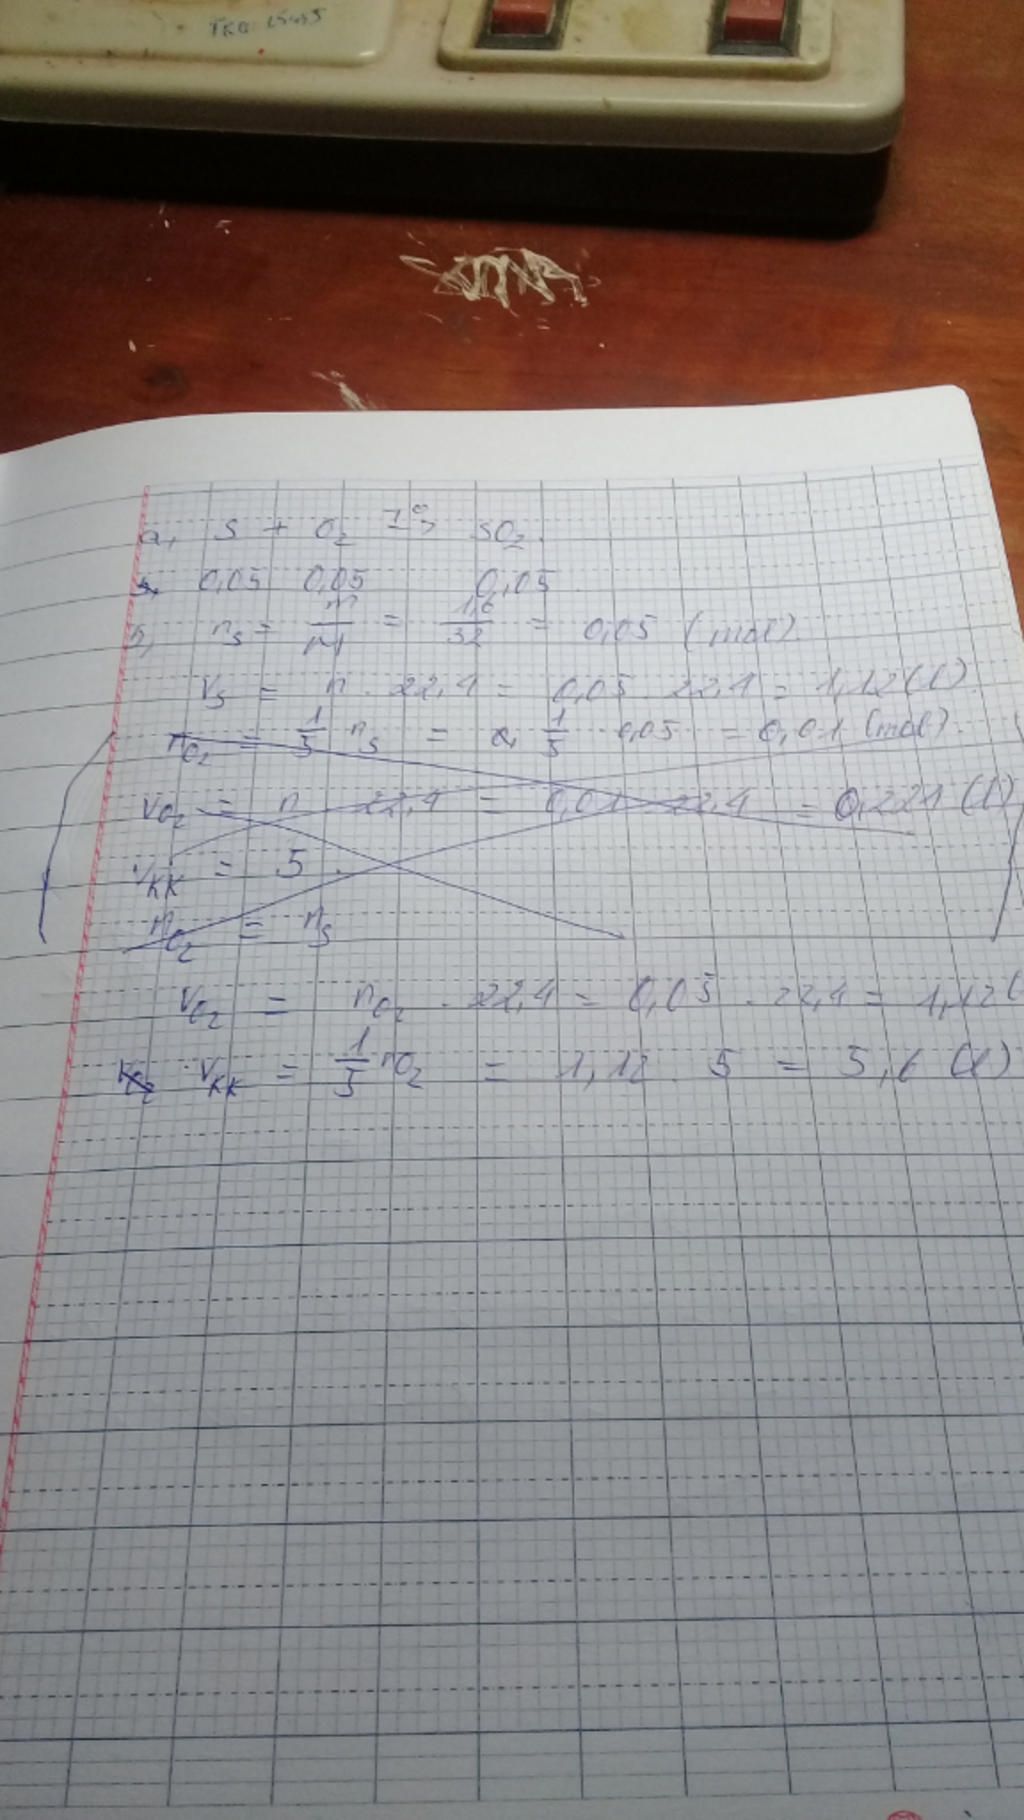 TKQ: 25445
a, S + O₂ t°→ SO₂.
0,05 0,05 0,05
b, nS = m/M = 1,6/32 = 0,05 (mol).
VS = n . 22,4 = 0,05 . 22,4 = 1,12 (l).
nO₂ = 1/5 nS = 1/5 . 0,05 = 0,01 (mol).
VO₂ = n . 22,4 = 0,01 . 22,4 = 0,224 (l)
VKK = 5 .
nO₂ = nS
VO₂ = nO₂ . 22,4 = 0,05 . 22,4 = 1,12 (
VKK = 1/5 nO₂ = 1,12 . 5 = 5,6 (l)